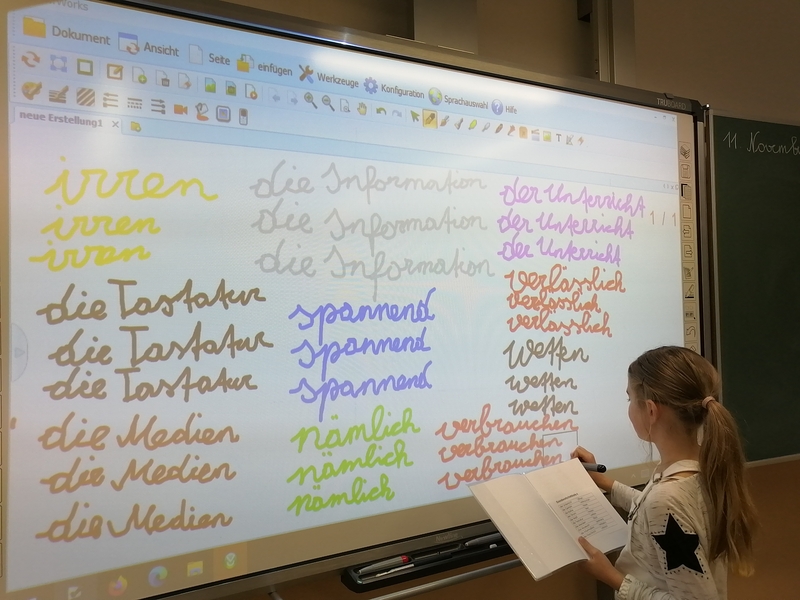 Works
Dokument Ansicht Seite einfügen Werkzeuge Konfiguration Sprachauswahl Hilfe
neue Erstellung1
irren
irren
irren
die Information
die Information
die Information
der Unterricht
der Unterricht
der Unterricht
1 / 1
verlässlich
verlässlich
verlässlich
die Tastatur
die Tastatur
die Tastatur
spannend
spannend
spannend
wetten
wetten
wetten
die Medien
die Medien
die Medien
nämlich
nämlich
nämlich
verbrauchen
verbrauchen
verbrauchen
11. Novemb